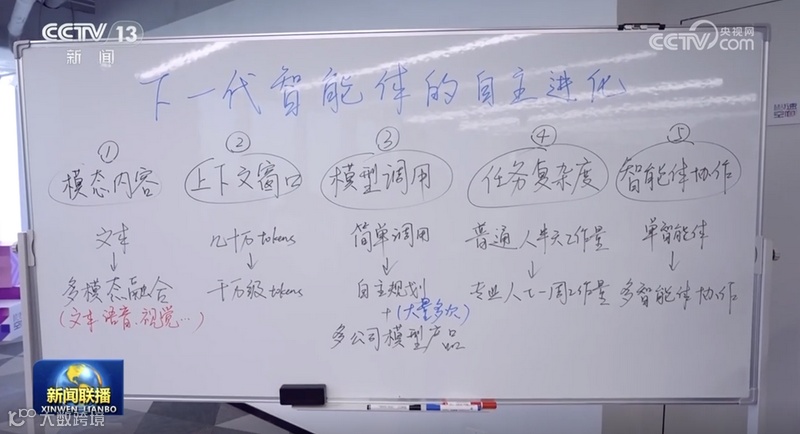 CCTV 13
新闻
央视网
CCTV.com
下一代智能体的自主进化
① ② ③ ④ ⑤
模态内容 上下文窗口 模型调用 任务复杂度 智能体协作
文本 几十万tokens 简单调用 普通人半天工作量 单智能体
↓ ↓ ↓ ↓ ↓
多模态融合 千万级tokens 自主规划 专业人士一周工作量 多智能体协作
(文本、语音、视觉…) + (大量多次)
多公司模型产品
新闻联播
XINWEN LIANBO
大数跨境